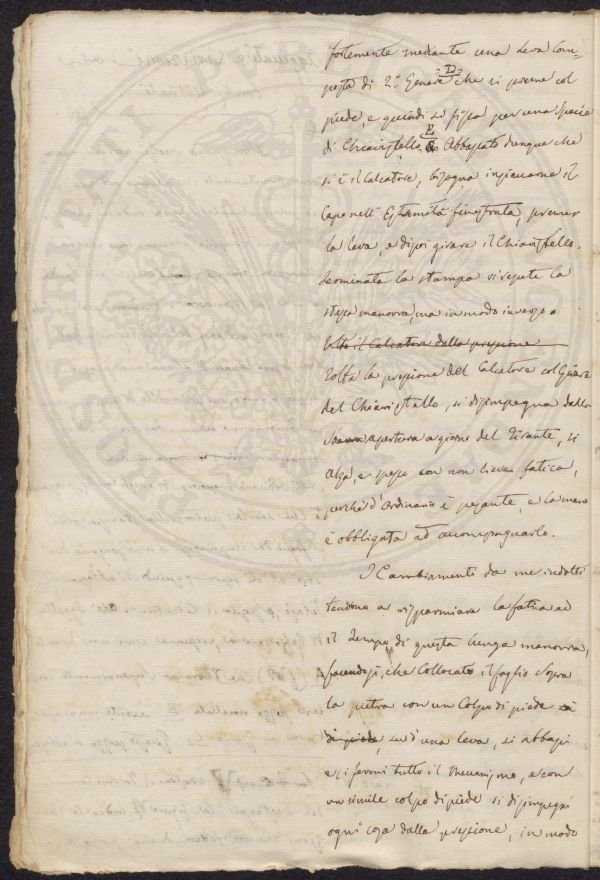 fortemente mediante una leva Com-
posta di 2.° Genere che si preme col
=D=
piede, e quindi si fissa per una specie
E
di Chiavistello. Abbassato dunque che
si è il Calcatore, bisogna inpiccarne il
Capo nell'Estremità finestrata, premer
la leva, e dipoi girare il Chiavistello.
Terminata la stampa si repete la
stessa manovra, ma in modo inverso e
tolto il Calcatore dalla pressione
tolta la pressione del Calcatore col Girare
del Chiavistello, si disimpegna dalla
apertura a giorno del Tirante, si
Alza, e spesso con non lieve fatica,
perchè d'Ordinario è pesante, e la mano
è obbligata ad accompagnarlo.
I Cambiamenti da me indotti
tendono a risparmiare la fatica ed
il Tempo, di questa lunga manovra,
facendosi, che Collocato il foglio sopra
la pietra con un Colpo di piede
di piede, su d'una leva, si abbassi
e si fermi tutto il Meccanismo, e con
un simile colpo di piede si disimpegni
ogni cosa dalla pressione, in modo
PROSPERITATI PVBL